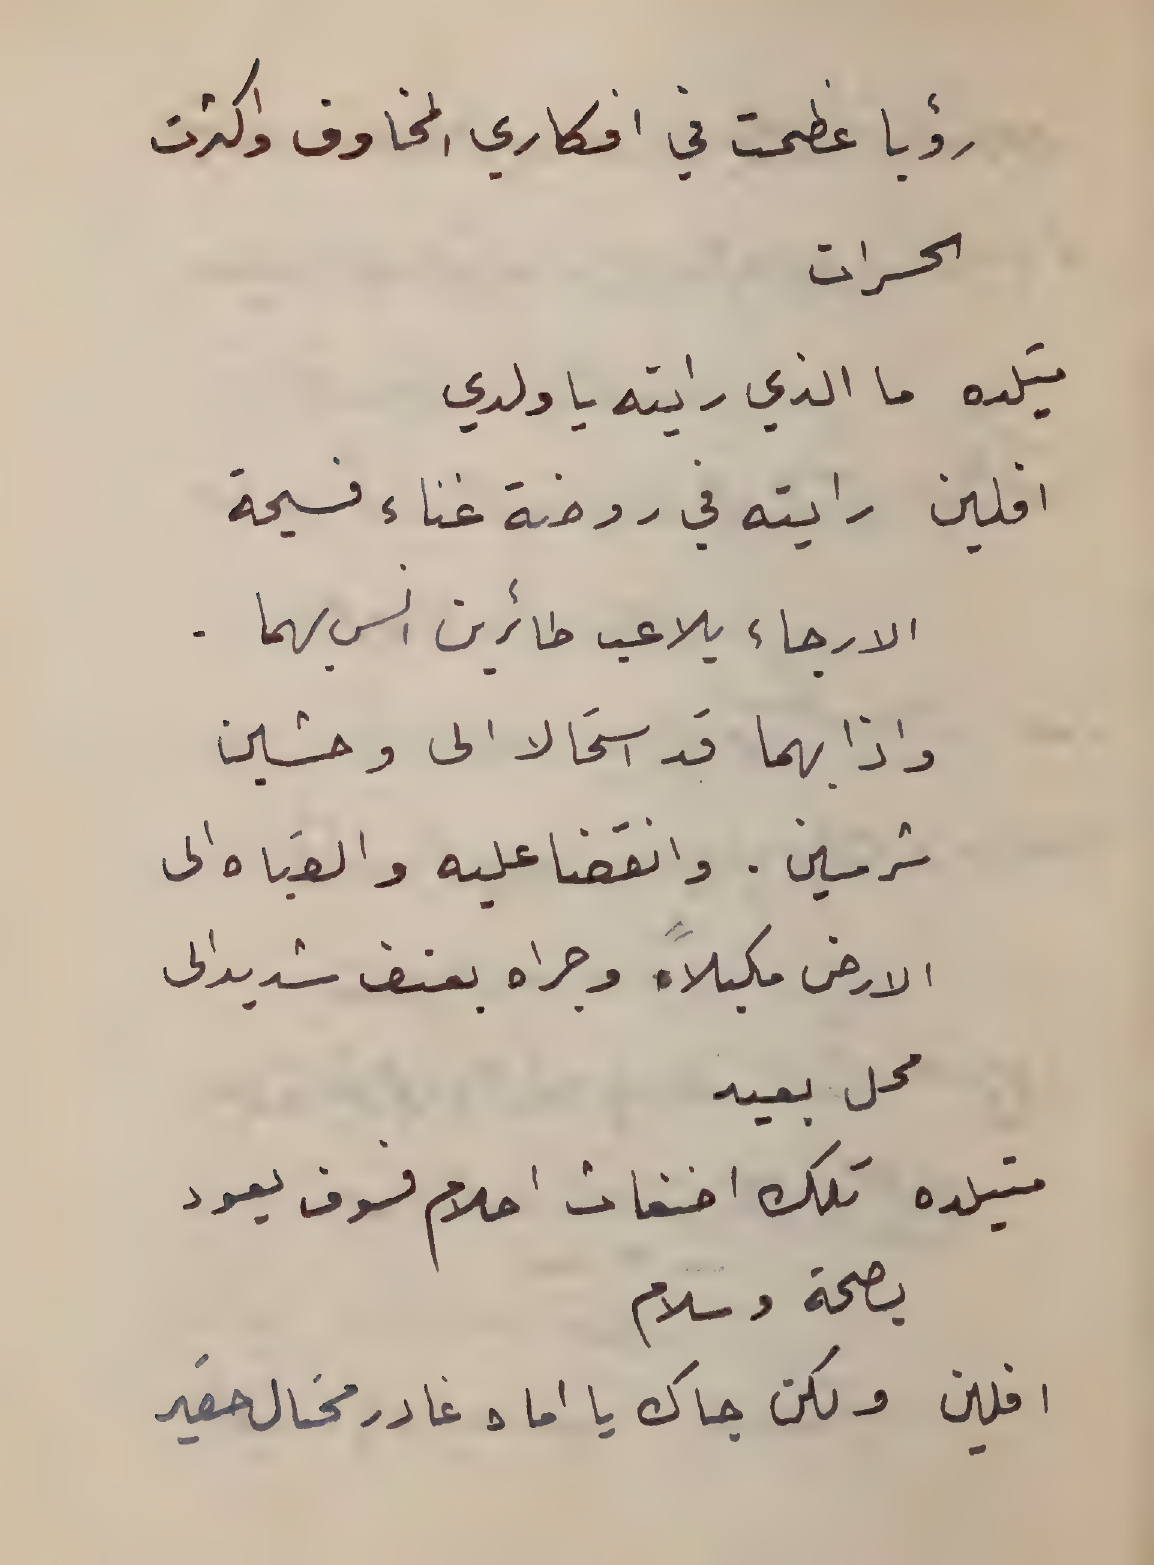 رؤيا عظمت في افكاري المخاوف واكثرت
الحسرات
متيلده ما الذي رايته يا ولدي
افلين رايته في روضة غناء فسيحة
الارجاء يلاعب طائرين انس بهما .
واذا بهما قد استحالا الى وحشين
شرسين . وانقضا عليه والقياه الى
الارض مكبلاً وجراه بعنف شديد الى
محل بعيد
متيلده تلك اضغاث احلام فسوف يعود
بصحة وسلام
افلين ولكن جاك يا اماه غادر محتال حقير